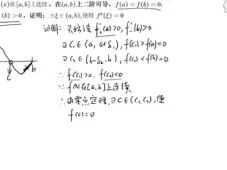 (x)在[a,b]上连续，在(a,b)上二阶可导，f(a)=f(b)=0.
(b)>0，证明：∃ξ∈(a,b),使得 f''(ξ)=0
证明：不妨设 f'₊(a)>0, f'₋(b)>0
∃c₁∈(a, a+δ₁), f(c₁)>f(a)=0
∃c₂∈(b-δ₂, b), f(c₂)<f(b)=0
∴ f(c₁)>0, f(c₂)<0
∵ f(x)在[a,b]上连续
∴ 由零点定理,∃c∈(c₁,c₂),使
f(c)=0
c
b